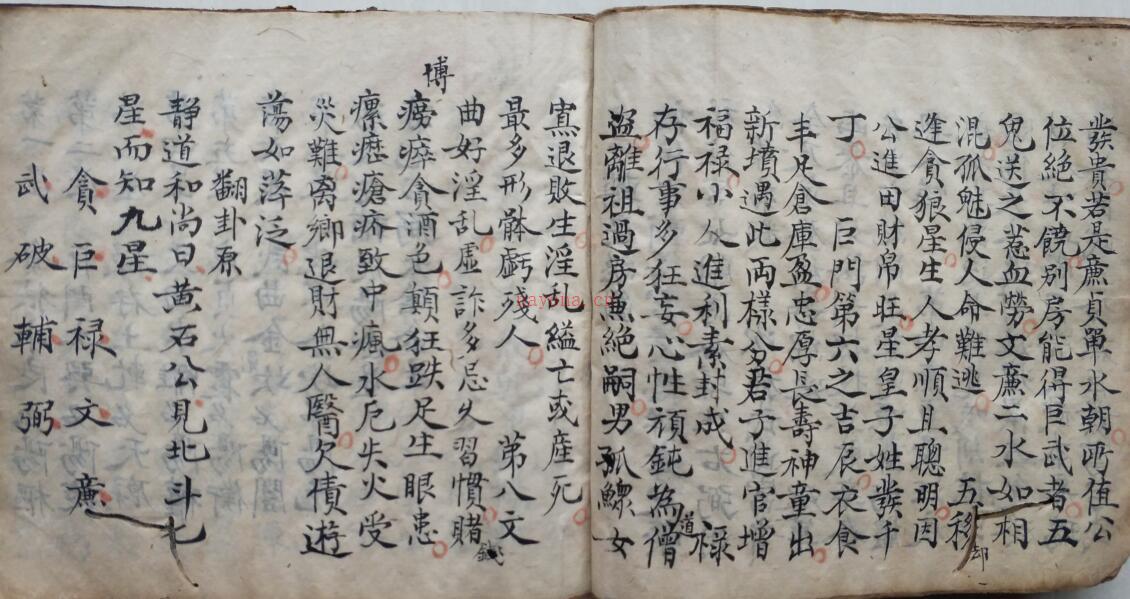 發貴若是廉貞單水朝所值公
位絕不饒別房能得巨武者五
鬼送之惹血勞文廉二水如相
混孤魅侵人命難逃 五移却
逢貪狼星生人孝順且聰明因
公進田財帛旺星皇子姓發千
丁 巨門第六之吉辰衣食
丰足倉庫盈忠厚長壽神童出
新墳遇此両樣分君子進官增
福禄小人進利素封成 禄
存行事多狂妄心性頑鈍為僧道
盜離祖過房無絕嗣男孤鰥女
寡退敗生淫乱縊亡或產死
最多形骵虧殘人 第八文
曲好淫乱虛詐多忌久習慣賭博錢
癆瘵貪酒色顛狂跌足生眼患
瘰癧瘡疥致中瘋水厄失火受
災難离鄉退財無人醫欠債遊
蕩如萍泛
翻卦原
静道和尚曰黄石公見北斗七
星而知九星
貪 巨 禄 文 廉
武 破 輔 弼
kayona.cn